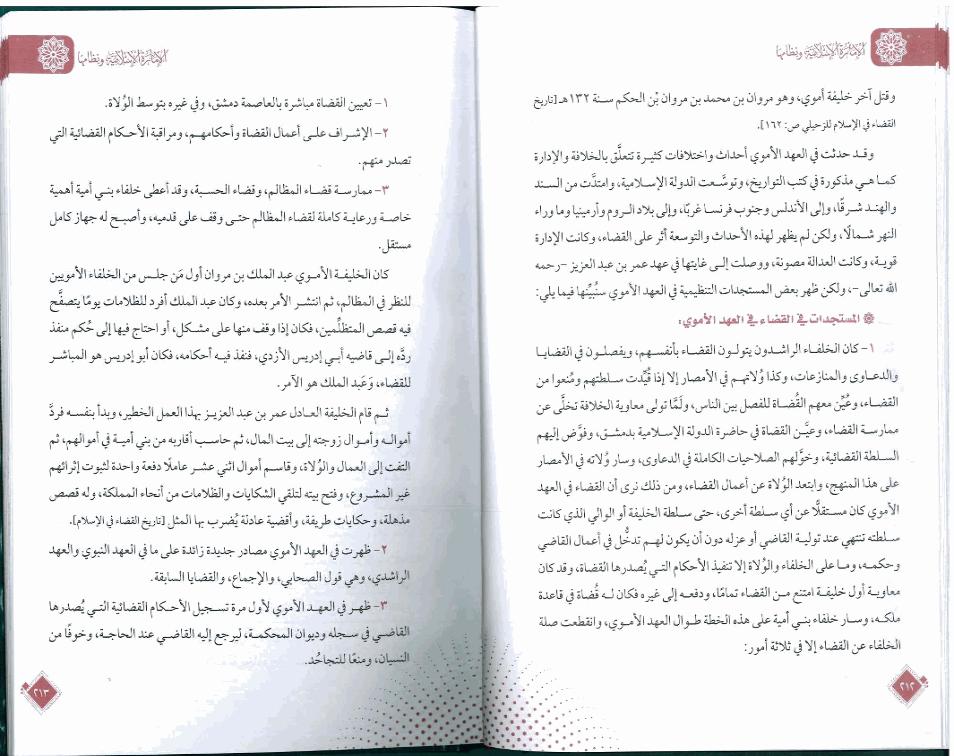 الإمارة الإسلامية ونظامها
وقتل آخر خليفة أموي، وهو مروان بن محمد بن مروان بْن الحكم سنة ١٣٢هـ [تاريخ
القضاء في الإسلام للزحيلي ص: ١٦٢].
وقد حدثت في العهد الأموي أحداث واختلافات كثيرة تتعلَّق بالخلافة والإدارة
كما هي مذكورة في كتب التواريخ، وتوسَّعت الدولة الإسلامية، وامتدَّت من السند
والهند شرقًا، وإلى الأندلس وجنوب فرنسا غربًا، وإلى بلاد الروم وأرمينيا وما وراء
النهر شمالًا، ولكن لم يظهر لهذه الأحداث والتوسعة أثر على القضاء، وكانت الإدارة
قوية، وكانت العدالة مصونة، ووصلت إلى غايتها في عهد عمر بن عبد العزيز -رحمه
الله تعالى-، ولكن ظهر بعض المستجدات التنظيمية في العهد الأموي سنُبيِّنها فيما يلي:
المستجدات في القضاء في العهد الأموي:
١- كان الخلفاء الراشدون يتولون القضاء بأنفسهم، ويفصلون في القضايا
والدعاوى والمنازعات، وكذا وُلاتهم في الأمصار إلا إذا قُيِّدت سلطتهم ومُنعوا من
القضاء، وعُيِّن معهم القُضاة للفصل بين الناس، ولَمَّا تولى معاوية الخلافة تخلَّى عن
ممارسة القضاء، وعيَّن القضاة في حاضرة الدولة الإسلامية بدمشق، وفوَّض إليهم
السلطة القضائية، وخوَّلهم الصلاحيات الكاملة في الدعاوى، وسار وُلاته في الأمصار
على هذا المنهج، وابتعد الوُلاة عن أعمال القضاء، ومن ذلك نرى أن القضاء في العهد
الأموي كان مستقلًّا عن أي سلطة أخرى، حتى سلطة الخليفة أو الوالي الذي كانت
سلطته تنتهي عند تولية القاضي أو عزله دون أن يكون لهم تدخُّل في أعمال القاضي
وحكمه، وما على الخلفاء والوُلاة إلا تنفيذ الأحكام التي يُصدرها القضاة، وقد كان
معاوية أول خليفة امتنع من القضاء تمامًا، ودفعه إلى غيره فكان له قُضاة في قاعدة
ملكه، وسار خلفاء بني أمية على هذه الخطة طوال العهد الأموي، وانقطعت صلة
الخلفاء عن القضاء إلا في ثلاثة أمور:
٢١٢
الإمارة الإسلامية ونظامها
١- تعيين القضاة مباشرة بالعاصمة دمشق، وفي غيره بتوسط الوُلاة.
٢- الإشراف على أعمال القضاة وأحكامهم، ومراقبة الأحكام القضائية التي
تصدر منهم.
٣- ممارسة قضاء المظالم، وقضاء الحسبة، وقد أعطى خلفاء بني أمية أهمية
خاصة ورعاية كاملة لقضاء المظالم حتى وقف على قدميه، وأصبح له جهاز كامل
مستقل.
كان الخليفة الأموي عبد الملك بن مروان أول مَن جلس من الخلفاء الأمويين
للنظر في المظالم، ثم انتشر الأمر بعده، وكان عبد الملك أفرد للظلامات يومًا يتصفَّح
فيه قصص المتظلِّمين، فكان إذا وقف منها على مشكل، أو احتاج فيها إلى حُكم منفذ
ردَّه إلى قاضيه أبي إدريس الأزدي، فنفذ فيه أحكامه، فكان أبو إدريس هو المباشر
للقضاء، وَعَبد الملك هو الآمر.
ثم قام الخليفة العادل عمر بن عبد العزيز بهذا العمل الخطير، وبدأ بنفسه فردَّ
أمواله وأموال زوجته إلى بيت المال، ثم حاسب أقاربه من بني أمية في أموالهم، ثم
التفت إلى العمال والوُلاة، وقاسم أموال اثني عشر عاملًا دفعة واحدة لثبوت إثرائهم
غير المشروع، وفتح بيته لتلقي الشكايات والظلامات من أنحاء المملكة، وله قصص
مذهلة، وحكايات طريفة، وأقضية عادلة يُضرب بها المثل [تاريخ القضاء في الإسلام].
٢- ظهرت في العهد الأموي مصادر جديدة زائدة على ما في العهد النبوي والعهد
الراشدي، وهي قول الصحابي، والإجماع، والقضايا السابقة.
٣- ظهر في العهد الأموي لأول مرة تسجيل الأحكام القضائية التي يُصدرها
القاضي في سجله وديوان المحكمة، ليرجع إليه القاضي عند الحاجة، وخوفًا من
النسيان، ومنعًا للتجاحُد.
٢١٣